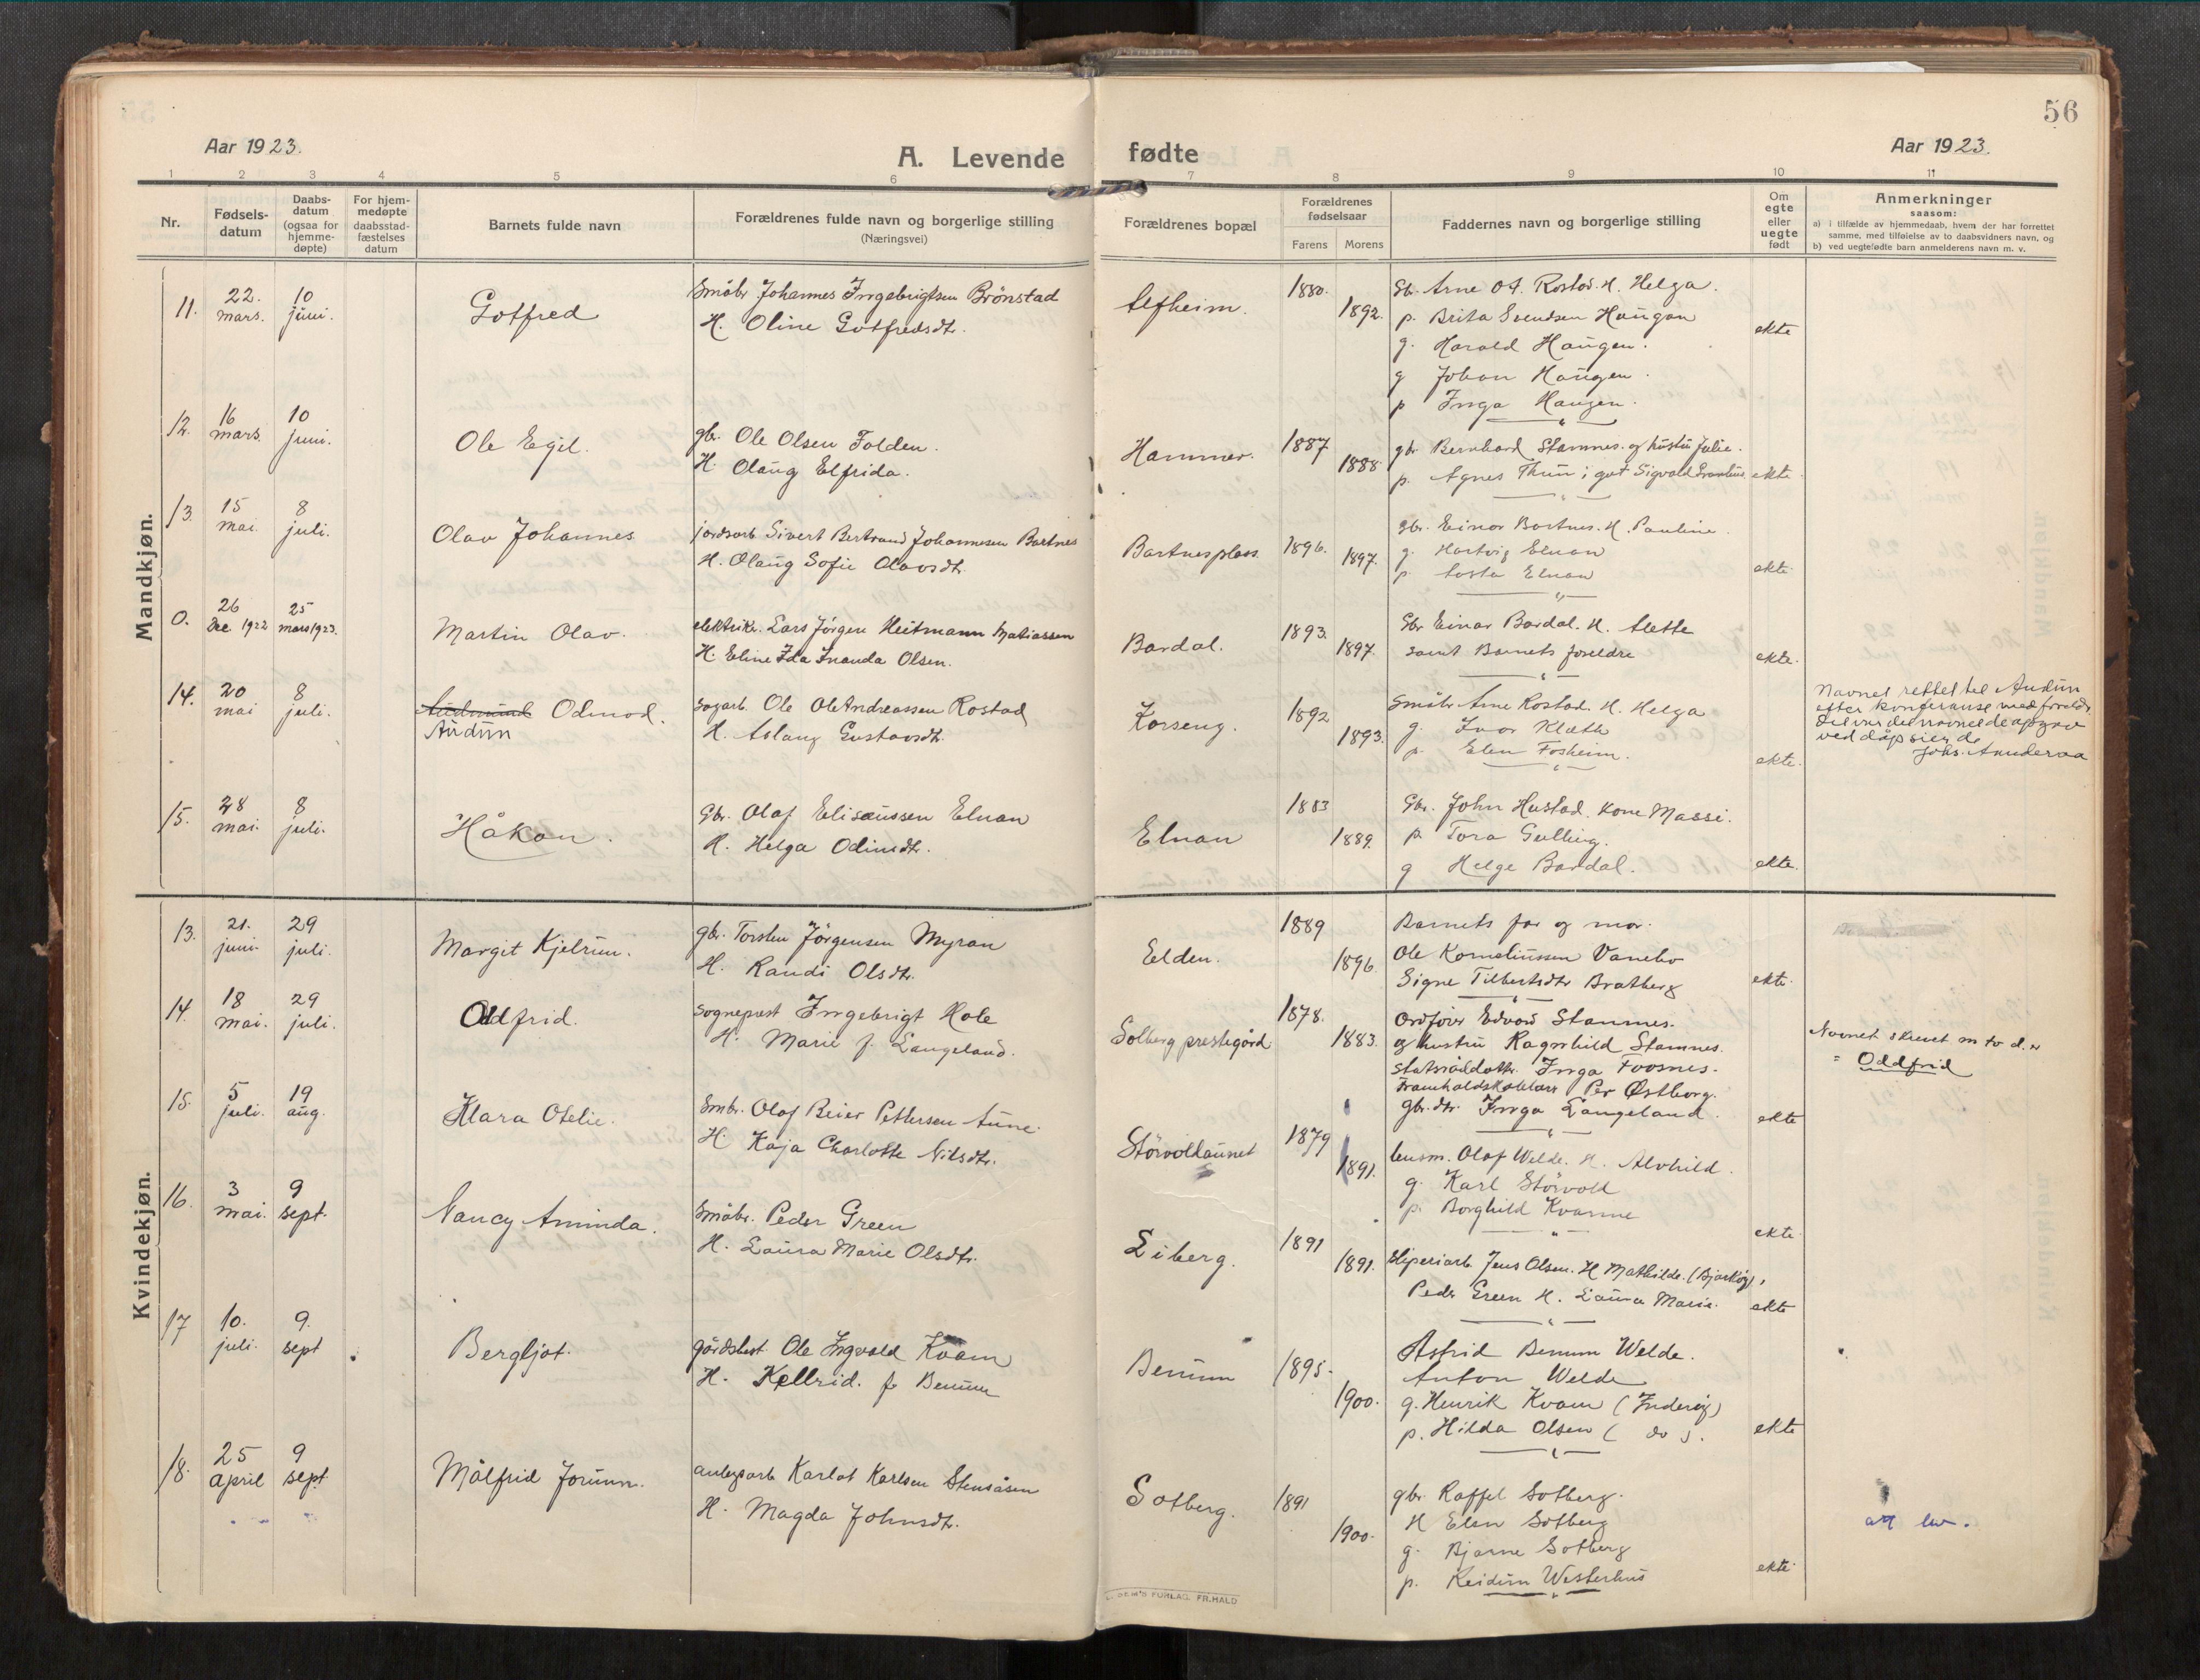 56
Aar 1923.
A. Levende fødte
Aar 1923.
1 2 3 4 5 6 7 8 9 10 11
Nr.
Fødsels-
datum
Daabs-
datum
(ogsaa for
hjemme-
døpte)
For hjem-
medøpte
daabsstad-
fæstelses
datum
Barnets fulde navn
Forældrenes fulde navn og borgerlige stilling
(Næringsvei)
Forældrenes bopæl
Forældrenes
fødselsaar
Farens Morens
Faddernes navn og borgerlige stilling
Om
egte
eller
uegte
født
Anmerkninger
saasom:
a) i tilfælde av hjemmedaab, hvem der har forrettet
samme, med tilføielse av to daabsvidners navn, og
b) ved uegtefødte barn anmelderens navn m. v.
Mandkjøn.
11. 22. mars. 10 juni. Gotfred
Småbr Johannes Ingebrigtsen Brönstad
H. Oline Gotfredsdtr.
1880. 1892.
Gbr. Arne O. Rostad. H. Helga.
p. Brita Svendsen Haugan
g. Harald Haugen.
g Johan Haugen.
p Inga Haugen.
ekte
12. 16 mars. 10 juni. Ole Egil.
gbr. Ole Olsen Folden.
H. Olaug Elfrida.
Hammer. 1887 1888
gbr Bernhard Stamnes. og hustru Julie.
p. Agnes Thun; gut Sigvald
ekte
13. 15 mai. 8 juli. Olav Johannes
jordarb Sivert Bertrand Johannesen Bartnes
H. Olaug Sofie Olavsdtr.
Bartnesplass. 1896. 1897.
gbr. Einar Bartnes. H. Pauline.
g. Hartvig Elnan
p. Elnan
ekte
0. 26 Dec. 1922 25 mars 1923. Martin Olav.
elektrikr. Lars Jörgen Heitmann Matiassen
H. Eline Ida Inanda Olsen.
Bardal. 1893. 1897.
Gbr Einar Bardal. H. Alette
samt Barnets foreldre
ekte.
14. 20 mai 8 juli. Audmund Odmod.
Audun
sagarb. Ole Ole Andreassen Rostad
H. Aslaug Gustavsdtr.
Korseng. 1892 1893.
Småbr Arne Rostad. H. Helga
g. Ivar Klæth
p. Elen Fosheim.
ekte.
Navnet rettet til Audun
efter konferanse med foreldr.
det var det navnet de opgav
ved dåp sier de
Johs. Aunderaa
15. 28 mai. 8 juli. Håkon.
Gbr. Olaf Elisæussen Elnan
H. Helga Odinsdtr.
Elnan 1883 1889.
Gbr. John Hustad. Kone Massi.
p. Tora Gulling.
g Helge Bardal.
ekte.
Kvindekjøn.
13. 21. juni. 29 juli. Margit Kjelrun.
gbr. Torsten Jörgensen Myran
H. Randi Olsdtr.
Elden. 1889 1896.
Barnets far og mor.
Ole Korneliussen Vanebo
Signe Tilbertsdtr Bratberg
ekte.
14. 18 mai. 29 juli. Oddfrid.
sogneprest Ingebrigt Hole
H. Marie f. Langeland.
Solberg prestegård 1878. 1883.
Ordförer Edvard Stamnes.
og hustru Ragnhild Stamnes.
statsråddattr. Inga Foosnes.
Framhaldskolelærer Per Østborg.
gbr. dtr. Inga Langeland.
ekte
Navnet skrevet m to d.er
= Oddfrid
15. 5 juli. 19 aug. Klara Otelie.
Smbr. Olaf Beier Pettersen Aune.
H. Kaja Charlotte Nilsdtr.
Störvoldaunet 1879 1891.
lensm. Olaf Welde. H. Alvhild.
g. Karl Störvold
p. Borghild Kvamme
ekte
16. 3 mai. 9 sept. Nancy Aminda.
Småbr. Peder Green
H. Laura Marie Olsdtr.
Liberg. 1891 1891.
Sliperiarb Jens Olsen. H Mathilde. (Bjarköy),
Peder Green H. Laura Marie.
ekte
17 10. juli. 9. sept Bergljot.
gårdsbest. Ole Ingvald Kvam
H. Kellrid. f. Benum
Benum 1895. 1900.
Astrid Benum Welde.
Anton Welde
g. Henrik Kvam (Inderöy)
p. Hilda Olsen ( do ).
ekte
18. 25 april 9 sept. Målfrid Jorunn.
anlegsarb Karlot Karlsen Stensåsen
H. Magda Johnsdtr.
Solberg. 1891 1900.
gbr. Raffel Solberg.
H Elen Solberg
g. Bjarne Solberg
p. Reidun Westerhus
ekte
FORLAG FR. HALD